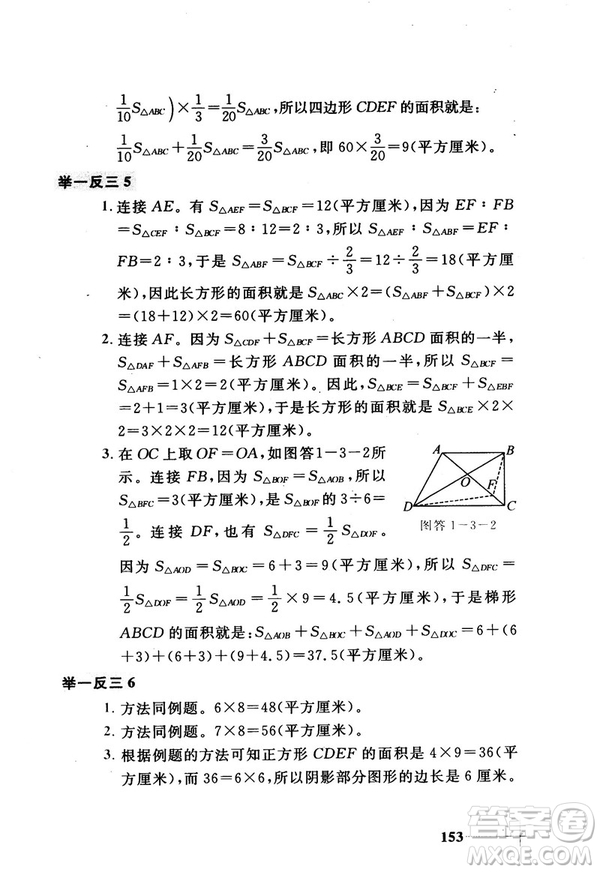 1/10 S△ABC)×1/3=1/20 S△ABC,所以四边形 CDEF 的面积就是:
1/10 S△ABC+1/20 S△ABC=3/20 S△ABC,即 60×3/20=9(平方厘米)。
举一反三 5
1. 连接 AE。有 S△AEF=S△BCF=12(平方厘米),因为 EF∶FB
=S△CEF∶S△BCF=8∶12=2∶3,所以 S△AEF∶S△ABF=EF∶
FB=2∶3,于是 S△ABF=S△AEF÷2/3=12÷2/3=18(平方厘
米),因此长方形的面积就是:S△ABD×2=(S△ABF+S△BCF)×2
=(18+12)×2=60(平方厘米)。
2. 连接 AF。因为 S△CDF+S△ABF=长方形 ABCD 的一半,
S△DAF+S△AFB=长方形 ABCD 面积的一半,所以 S△CDF=
S△AFB=1×2=2(平方厘米)。因此,S△BCE=S△BCF+S△EBF
=2+1=3(平方厘米),于是长方形的面积就是:S△BCE×2×
2=3×2×2=12(平方厘米)。
3. 在 OC 上取 OF=OA,如图答1-3-2所
示。连接 FB,因为 S△BOF=S△AOB,所以
S△BFC=3(平方厘米),是△BOF 的 3÷6=
1/2。连接 DF,也有 S△DFC=1/2 S△DOF。
A
B
O
F
D
C
图答 1-3-2
因为 S△AOD=S△BOC=6+3=9(平方厘米),所以 S△DFC=
1/2 S△DOF=1/2 S△AOD=1/2×9=4.5(平方厘米),于是梯形
ABCD 的面积就是:S△AOB+S△BOC+S△AOD+S△COD=6+(6
+3)+(6+3)+(9+4.5)=37.5(平方厘米)。
举一反三 6
1. 方法同例题。6×8=48(平方厘米)。
2. 方法同例题。7×8=56(平方厘米)。
3. 根据例题的方法可知正方形 CDEF 的面积是 4×9=36(平
方厘米),而 36=6×6,所以阴影部分图形的边长是 6 厘米。
153
作业答案圈
MXQE.COM